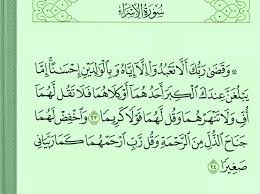 سُورَةُ الإِسْرَاءِ
۞ وَقَضَىٰ رَبُّكَ أَلَّا تَعْبُدُوٓا۟ إِلَّآ إِيَّاهُ وَبِٱلْوَٰلِدَيْنِ إِحْسَٰنًا ۚ إِمَّا
يَبْلُغَنَّ عِندَكَ ٱلْكِبَرَ أَحَدُهُمَآ أَوْ كِلَاهُمَا فَلَا تَقُل لَّهُمَآ
أُفٍّ وَلَا تَنْهَرْهُمَا وَقُل لَّهُمَا قَوْلًا كَرِيمًا ٢٣ وَٱخْفِضْ لَهُمَا
جَنَاحَ ٱلذُّلِّ مِنَ ٱلرَّحْمَةِ وَقُل رَّبِّ ٱرْحَمْهُمَا كَمَا رَبَّيَانِى
صَغِيرًا ٢٤